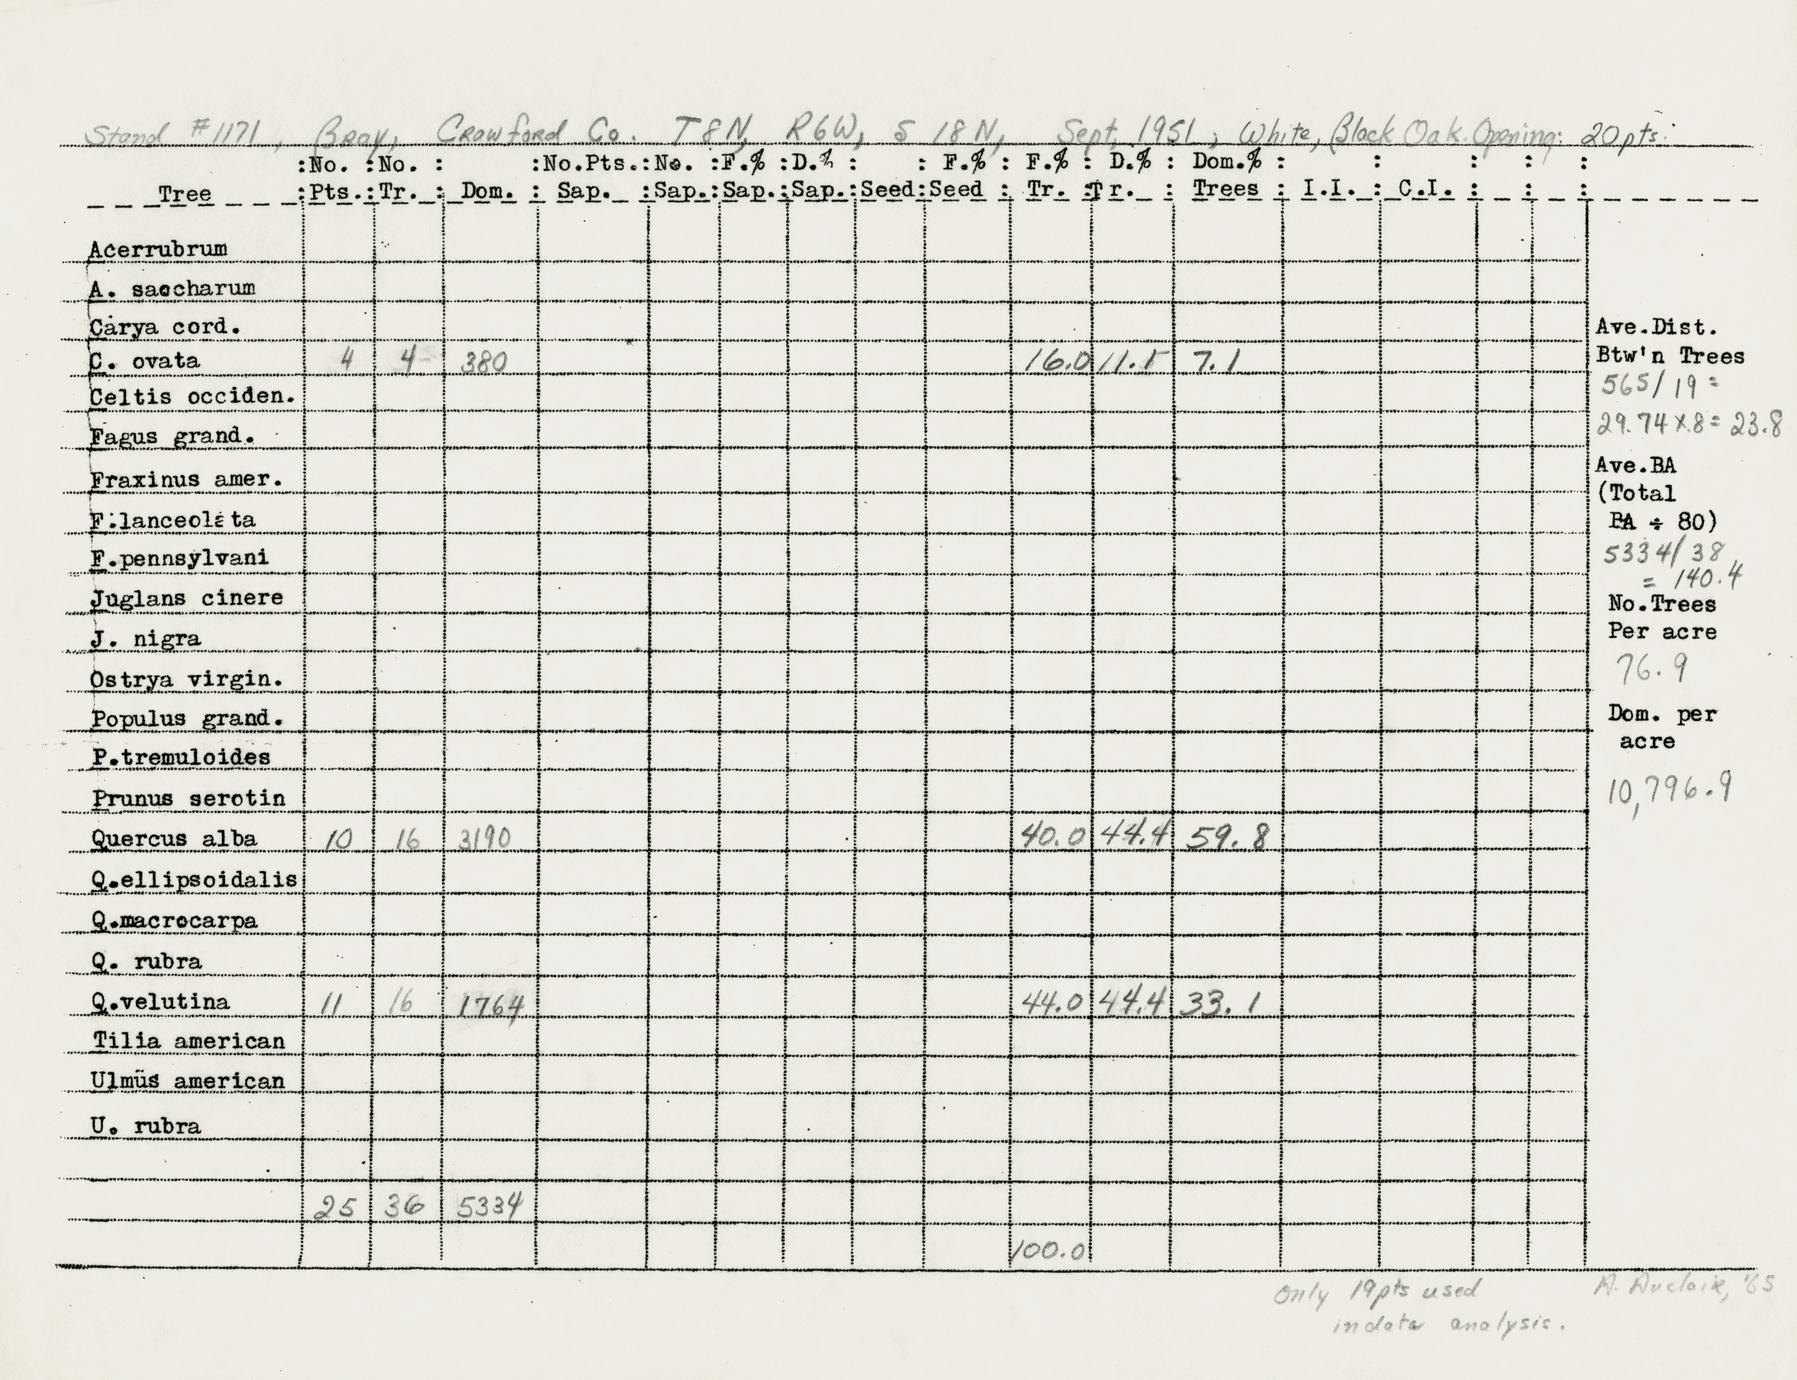 Stand #1171, Bray, Crawford Co. T8N, R6W, S 18N, Sept, 1951; White, Black Oak Opening: 20pts:
:No. :No. : :No.Pts.:No. :F.% :D.% : : F.% : F.% : D.% : Dom.% : : : : :
Tree :Pts.:Tr. : Dom. : Sap. :Sap.:Sap.:Sap.:Seed:Seed : Tr. :Tr. : Trees : I.I. : C.I. : : :
Acerrubrum
A. saccharum
Carya cord.
Ave.Dist.
Btw'n Trees
C. ovata 4 4 380 16.0 11.1 7.1
565/19 =
Celtis occiden.
29.74 x .8 = 23.8
Fagus grand.
Ave.BA
Fraxinus amer.
(Total
F.lanceolata
BA ÷ 80)
F.pennsylvani
5334/38
= 140.4
Juglans cinere
No.Trees
Per acre
J. nigra
76.9
Ostrya virgin.
Populus grand.
Dom. per
acre
P.tremuloides
10,796.9
Prunus serotin
Quercus alba 10 16 3190 40.0 44.4 59.8
Q.ellipsoidalis
Q.macrocarpa
Q. rubra
Q.velutina 11 16 1764 44.0 44.4 33.1
Tilia american
Ulmus american
U. rubra
25 36 5334
100.0
Only 19pts used
in data analysis.
A. Auclair, '65